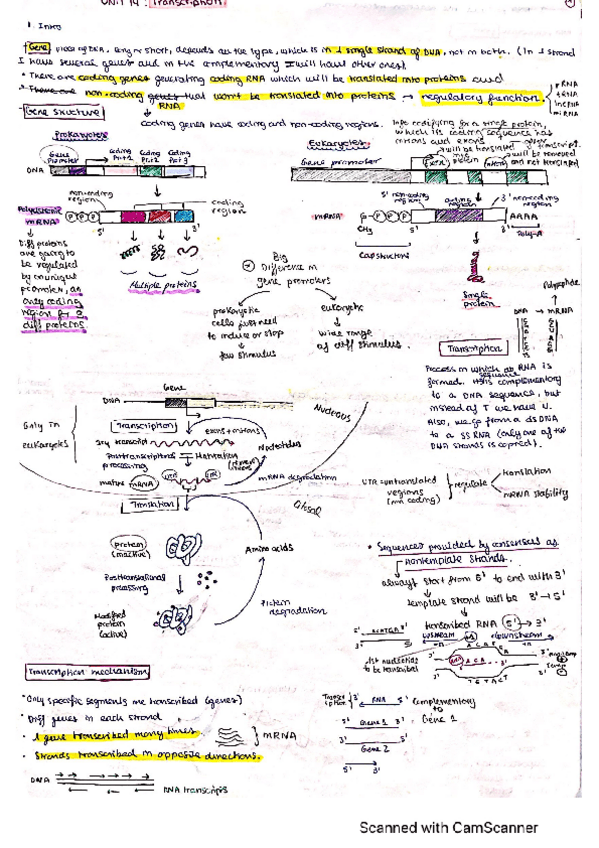 UNIT 14: Transcription
1. Intro
Gene piece of DNA, long or short, depends on the type, which is in 1 single strand of DNA, not in both. (In 1 strand
I have several genes and in the complementary I will have other ones)
• There are coding genes generating coding RNA which will be translated into proteins and
• There are non-coding genes that won't be translated into proteins → regulatory function.
RNA
rRNA
tRNA
lncRNA
miRNA
Gene structure
coding genes have coding and non-coding regions.
Prokaryotes
Gene promoter
coding Prt 1
Coding Prt 2
Coding Prt 3
DNA
non-coding region
coding region
Polycistronic mRNA
P P P
5'
3'
Diff proteins
are going to
be regulated
by an unique
promoter, as
only coding
region for 3
diff proteins.
Multiple proteins
Eukaryotes
which is coding sequence has
introns and exons
Gene promoter
will be translated
will be removed
and not translated
5' non-coding region
coding region
3' non-coding region
mRNA
P P P
CH3
Cap structure
AAAA
Poly-A
Single protein
Big
Difference in
gene promoters
prokaryotic
cells just need
to induce or stop
few stimulus
eukaryotic
wide range
of diff stimulus.
Polypeptide
DNA → mRNA
Transcription
Process in which an RNA is
formed. It is complementary
sequence
to a DNA sequence, but
instead of T we have U.
Also, we go from a dsDNA
to a ssRNA (only one of the
DNA strands is copied).
Gene
DNA
Nucleous
Only in
eukaryotes
Transcription
exons + introns
1ry transcript
Nucleotides
Posttranscriptional
processing
Maturation
mature mRNA
UTR
UTR
mRNA degradation
UTR = untranslated
regions
(non coding)
regulate
translation
mRNA stability
Translation
Cytosol
protein
(inactive)
Amino acids
Posttranslational
processing
Protein
degradation
Modified
protein
(active)
• Sequences provided by consensus as
nontemplate strands.
always start from 5' to end with 3'
template strand will be 3' → 5'
transcribed RNA 5' → 3'
upstream
downstream
1st nucleotide
to be transcribed
Transcription mechanism
• Only specific segments are transcribed (genes)
• Diff genes in each strand
• 1 gene transcribed many times
mRNA
• Strands transcribed in opposite directions.
DNA
RNA transcripts
RNA
Complementary
to
Gene 1
5' Gene 1 3'
3' 5'
Gene 2
5' 3'
Scanned with CamScanner